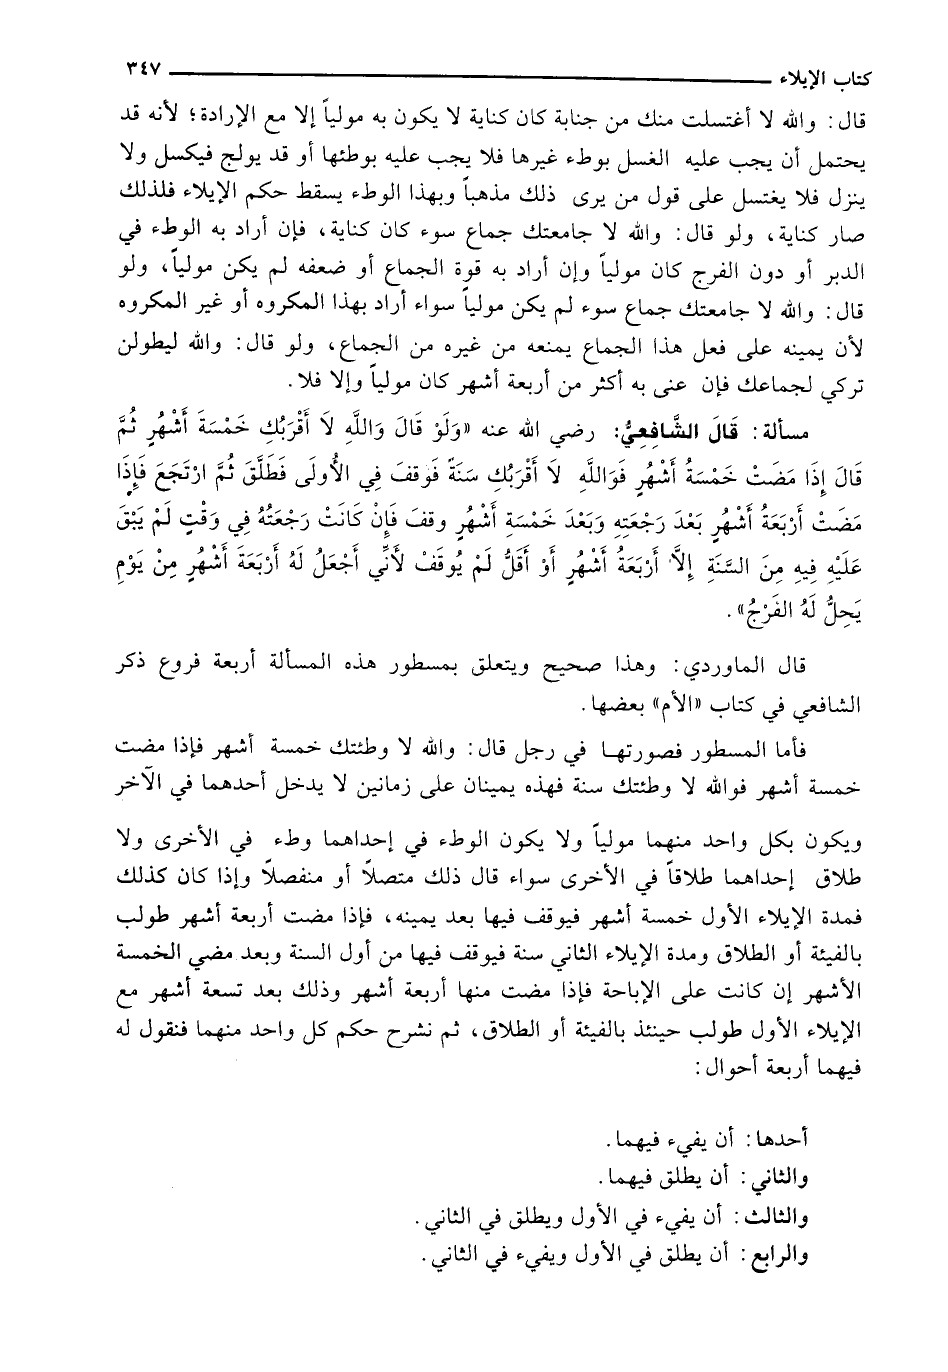 كتاب الإيلاء ـــــــــــــــــــــــــــــــــــــــــ ٣٤٧
قال: والله لا أغتسلت منك من جنابة كان كناية لا يكون به مولياً إلا مع الإرادة؛ لأنه قد
يحتمل أن يجب عليه الغسل بوطء غيرها فلا يجب عليه بوطئها أو قد يولج فيكسل ولا
ينزل فلا يغتسل على قول من يرى ذلك مذهباً وبهذا الوطء يسقط حكم الإيلاء فلذلك
صار كناية، ولو قال: والله لا جامعتك جماع سوء كان كناية، فإن أراد به الوطء في
الدبر أو دون الفرج كان مولياً وإن أراد به قوة الجماع أو ضعفه لم يكن مولياً، ولو
قال: والله لا جامعتك جماع سوء لم يكن مولياً سواء أراد بهذا المكروه أو غير المكروه
لأن يمينه على فعل هذا الجماع يمنعه من غيره من الجماع، ولو قال: والله ليطولن
تركي لجماعك فإن عنى به أكثر من أربعة أشهر كان مولياً وإلا فلا.
مسألة: قَالَ الشَّافِعِيُّ: رضي الله عنه «وَلَوْ قَالَ وَاللَّهِ لَا أَقْرَبُكِ خَمْسَةَ أَشْهُرٍ ثُمَّ
قَالَ إِذَا مَضَتْ خَمْسَةُ أَشْهُرٍ فَوَاللَّهِ لَا أَقْرَبُكِ سَنَةً فَوَقفَ فِي الأُولَى فَطَلَّقَ ثُمَّ ارْتَجَعَ فَإِذَا
مَضَتْ أَرْبَعَةُ أَشْهُرٍ بَعْدَ رَجْعَتِهِ وَبَعْدَ خَمْسَةِ أَشْهُرٍ وقفَ فَإِنْ كَانَتْ رَجْعَتُهُ فِي وَقْتٍ لَمْ يَبْقَ
عَلَيْهِ فِيهِ مِنَ السَّنَةِ إِلاَّ أَرْبَعَةُ أَشْهُرٍ أَوْ أَقَلُّ لَمْ يُوقَفْ لأَنِّي أَجْعَلُ لَهُ أَرْبَعَةَ أَشْهُرٍ مِنْ يَوْمِ
يَحِلُّ لَهُ الفَرْجُ».
قال الماوردي: وهذا صحيح ويتعلق بمسطور هذه المسألة أربعة فروع ذكر
الشافعي في كتاب «الأم» بعضها.
فأما المسطور فصورتها في رجل قال: والله لا وطئتك خمسة أشهر فإذا مضت
خمسة أشهر فوالله لا وطئتك سنة فهذه يمينان على زمانين لا يدخل أحدهما في الآخر
ويكون بكل واحد منهما مولياً ولا يكون الوطء في إحداهما وطء في الأخرى ولا
طلاق إحداهما طلاقاً في الأخرى سواء قال ذلك متصلاً أو منفصلاً وإذا كان كذلك
فمدة الإيلاء الأول خمسة أشهر فيوقف فيها بعد يمينه، فإذا مضت أربعة أشهر طولب
بالفيئة أو الطلاق ومدة الإيلاء الثاني سنة فيوقف فيها من أول السنة وبعد مضي الخمسة
الأشهر إن كانت على الإباحة فإذا مضت منها أربعة أشهر وذلك بعد تسعة أشهر مع
الإيلاء الأول طولب حينئذ بالفيئة أو الطلاق، ثم نشرح حكم كل واحد منهما فنقول له
فيهما أربعة أحوال:
أحدها: أن يفيء فيهما.
والثاني: أن يطلق فيهما.
والثالث: أن يفيء في الأول ويطلق في الثاني.
والرابع: أن يطلق في الأول ويفيء في الثاني.